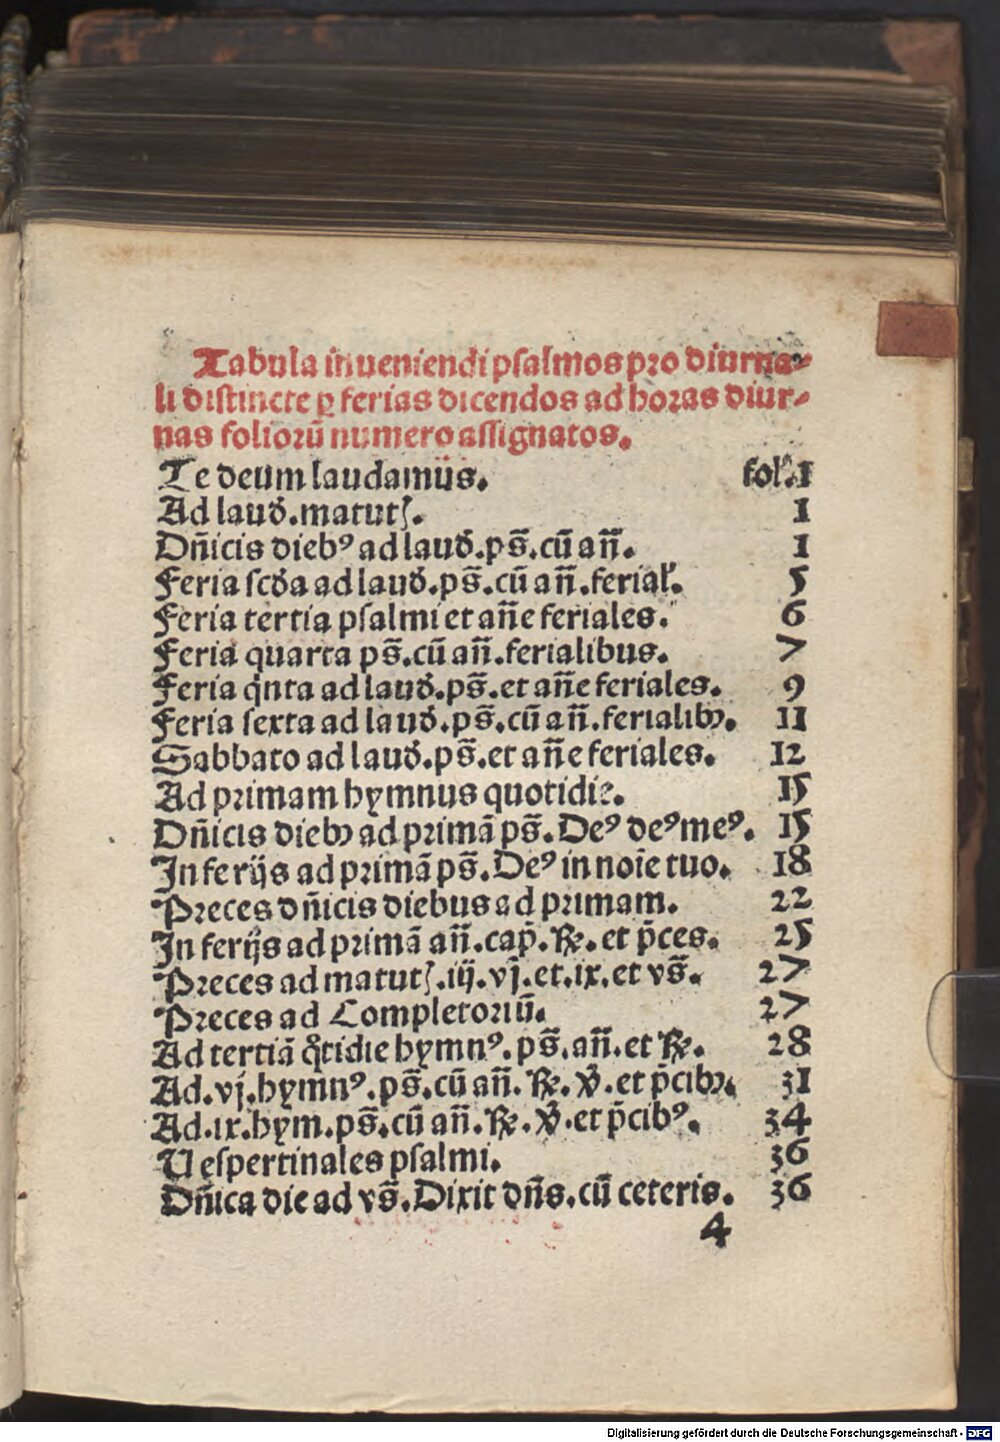 Tabula inueniendi psalmos pro diurna⸗
li distincte ꝑ ferias dicendos ad horas diur⸗
nas foliorū numero assignatos.
Te deum laudamus. fol.1
Ad laud.matut. 1
Dn̄icis diebꝰ ad laud.ps̄.cū an̄. 1
Feria scd̄a ad laud.ps̄.cū an̄.ferial. 5
Feria tertia psalmi et an̄e feriales. 6
Feria quarta ps̄.cū an̄.ferialibus. 7
Feria qͥnta ad laud.ps̄.et an̄e feriales. 9
Feria sexta ad laud.ps̄.cū an̄.ferialibꝫ. 11
Sabbato ad laud.ps̄.et an̄e feriales. 12
Ad primam hymnus quotidie. 15
Dn̄icis diebꝫ ad primā ps̄.Deꝰ deꝰ meꝰ. 15
In ferijs ad primā ps̄.Deꝰ in noīe tuo. 18
Preces dn̄icis diebus ad primam. 22
In ferijs ad primā an̄.cap̄.℞.et p̄ces. 25
Preces ad matut.iij.vj.et.ix.et vs̄. 27
Preces ad Completoriū. 27
Ad tertiā qͦtidie hymnꝰ.ps̄.an̄.et ℞. 28
Ad.vj.hymnꝰ.ps̄.cū an̄.℞.℣.et p̄cibꝫ. 31
Ad.ix.hym.ps̄.cū an̄.℞.℣.et p̄cibꝰ. 34
Uespertinales psalmi. 36
Dn̄ica die ad vs̄.Dixit dn̄s.cū ceteris. 36
4
Digitalisierung gefördert durch die Deutsche Forschungsgemeinschaft - DFG